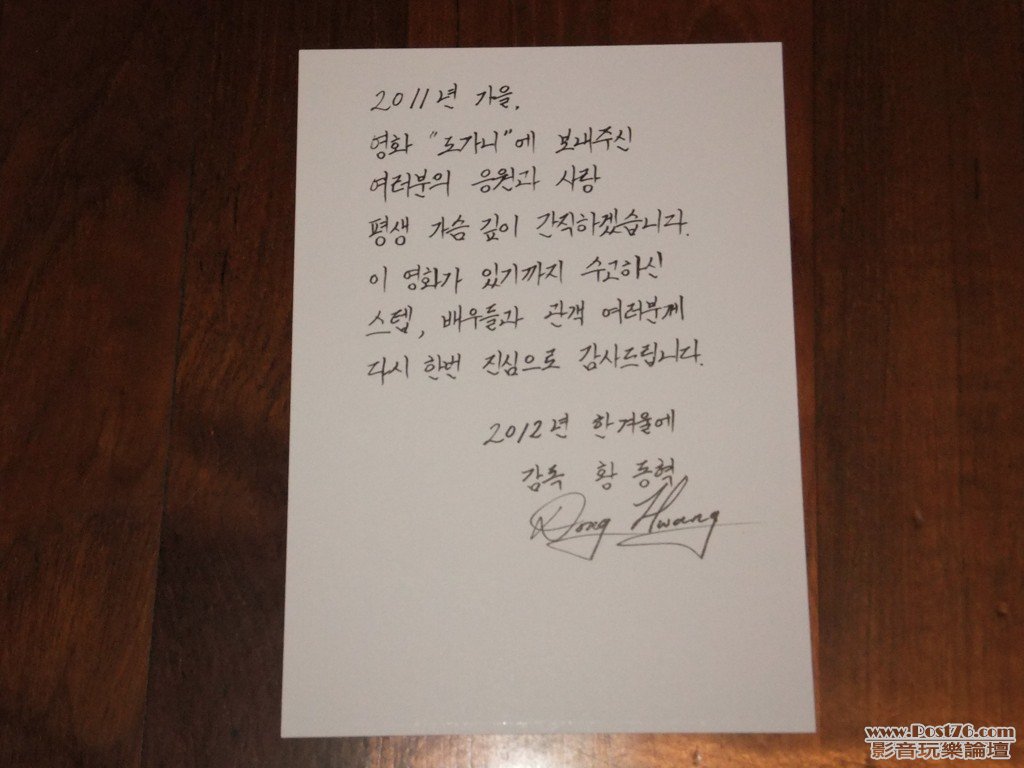 2011년 가을.
영화 "도가니"에 보내주신
여러분의 응원과 사랑
평생 가슴 깊이 간직하겠습니다.
이 영화가 있기까지 수고하신
스텝, 배우들과 관객 여러분께
다시 한번 진심으로 감사드립니다.
2012년 한겨울에
감독 황동혁
Dong Hwang
www.Post76.com
影音玩樂論壇